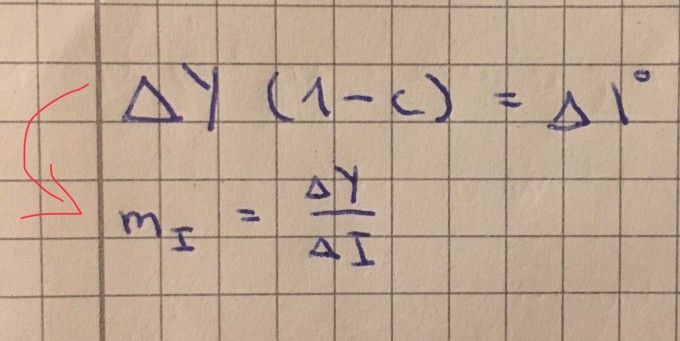 ΔY (1-c) = ΔI°
m_I = ΔY/ΔI